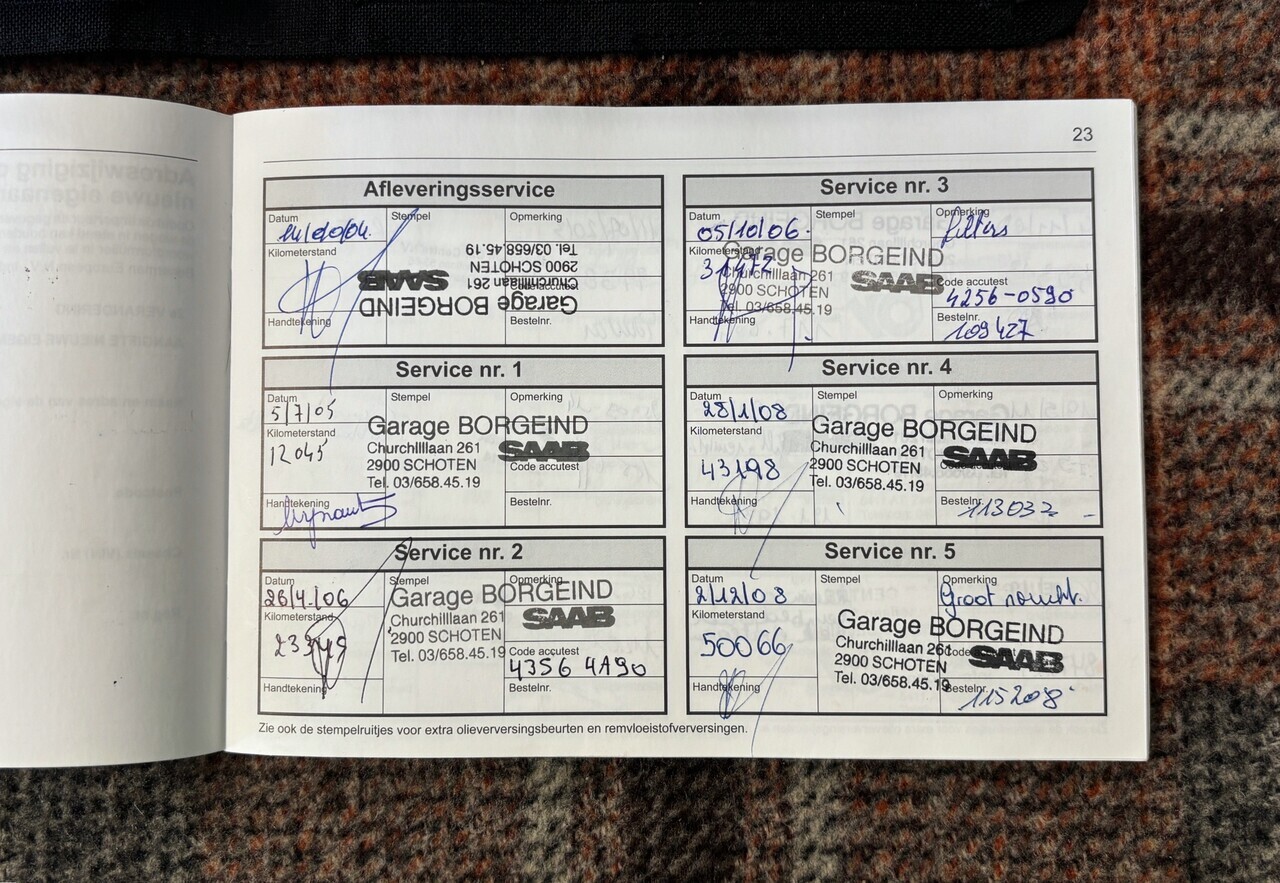 23
Afleveringsservice
Datum
Stempel
Opmerking
Kilometerstand
Garage BORGEIND
Churchilllaan 261
SAAB
2900 SCHOTEN
Tel. 03/658.45.19
Code accutest
Handtekening
Bestelnr.
Service nr. 1
Datum
Stempel
Opmerking
5/7/05
Kilometerstand
12045
Garage BORGEIND
Churchilllaan 261
SAAB
2900 SCHOTEN
Code accutest
Tel. 03/658.45.19
Handtekening
Bestelnr.
Service nr. 2
Datum
Stempel
Opmerking
26/4/06
Kilometerstand
Garage BORGEIND
Churchilllaan 261
SAAB
2900 SCHOTEN
Tel. 03/658.45.19
Code accutest
4356 4A90
Handtekening
Bestelnr.
Service nr. 3
Datum
Stempel
Opmerking
05/10/06.
filters
Kilometerstand
Garage BORGEIND
Churchilllaan 261
SAAB
2900 SCHOTEN
Tel. 03/658.45.19
Code accutest
4256-0590
Handtekening
Bestelnr.
109427
Service nr. 4
Datum
Stempel
Opmerking
28/1/08
Kilometerstand
43198
Garage BORGEIND
Churchilllaan 261
SAAB
2900 SCHOTEN
Tel. 03/658.45.19
Handtekening
Bestelnr.
113032
Service nr. 5
Datum
Stempel
Opmerking
2/12/08
Groot
Kilometerstand
50066
Garage BORGEIND
Churchilllaan 261
Code
SAAB
2900 SCHOTEN
Tel. 03/658.45.19
Handtekening
Bestelnr.
115208
Zie ook de stempelruitjes voor extra olieverversingsbeurten en remvloeistofverversingen.